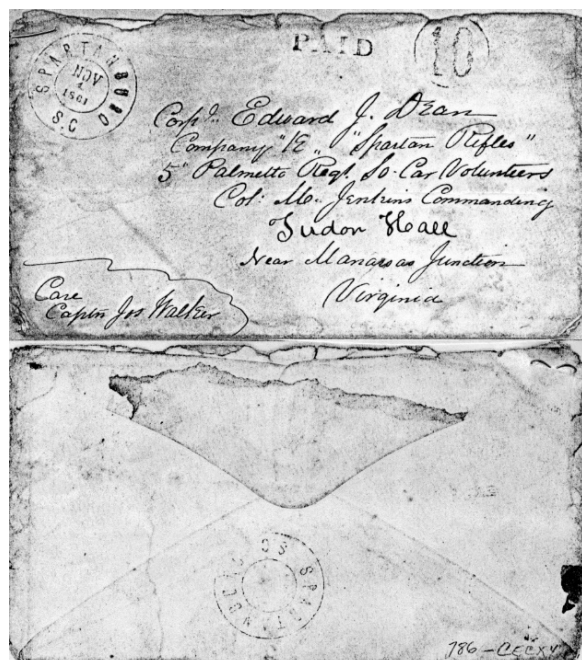 SPARTANBURG
NOV
1861
S.C
PAID
10
Corpl. Edward J. Dean
Company "E" "Spartan Rifles"
5" Palmetto Regt. So. Car Volunteers
Col: M. Jenkins Commanding
Tudor Hall
Near Manassas Junction
Virginia
Care
Captn Jos Walker
SPARTANBURG S.C
786 –